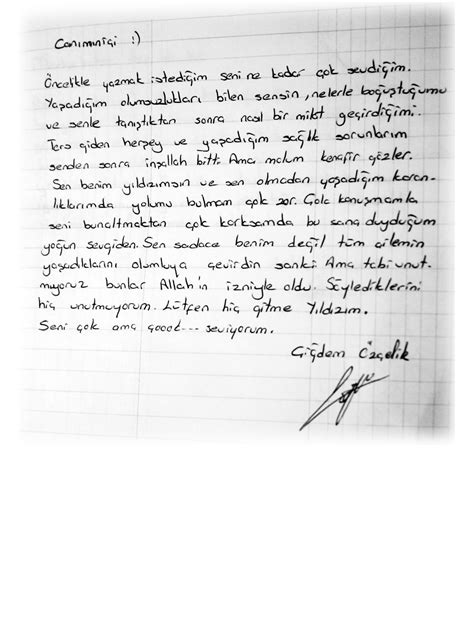 Canımıniçi :)
Öncelikle yazmak istediğim seni ne kadar çok sevdiğim.
Yaşadığım olumsuzlukları bilen sensin, nelerle boğuştuğumu
ve senle tanıştıktan sonra nasıl bir mikt geçirdiğimi.
Ters giden herşey ve yaşadığım sağlık sorunlarım
senden sonra inşallah bitti. Ama malum kenafir gözler.
Sen benim yıldızımsın ve sen olmadan yaşadığım karan-
lıklarımda yolumu bulmam çok zor. Çok konuşmamla
seni bunaltmaktan çok korksamda bu sana duyduğum
yoğun sevgiden. Sen sadece benim değil tüm ailemin
yaşadıklarını olumluya çevirdin sanki. Ama tabi unut-
muyoruz bunlar Allah'ın izniyle oldu. Söylediklerini
hiç unutmuyorum. Lütfen hiç gitme Yıldızım.
Seni çok ama çoook--- seviyorum.
Çiğdem Özçelik